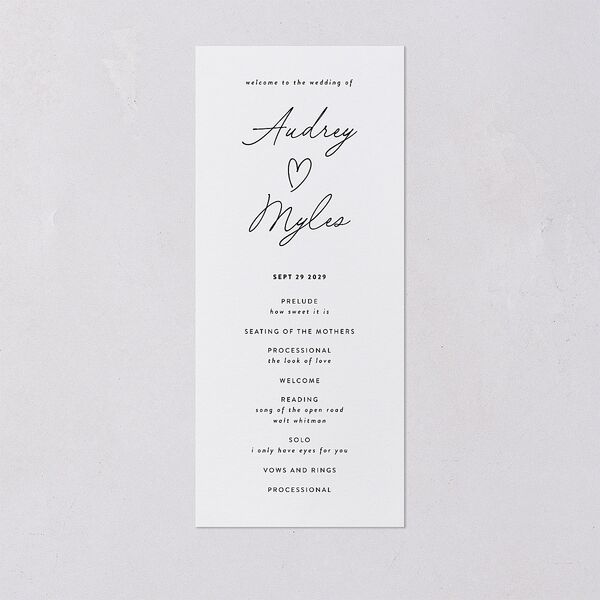 welcome to the wedding of
Audrey
Myles
SEPT 29 2029
PRELUDE
how sweet it is
SEATING OF THE MOTHERS
PROCESSIONAL
the look of love
WELCOME
READING
song of the open road
walt whitman
SOLO
i only have eyes for you
VOWS AND RINGS
PROCESSIONAL